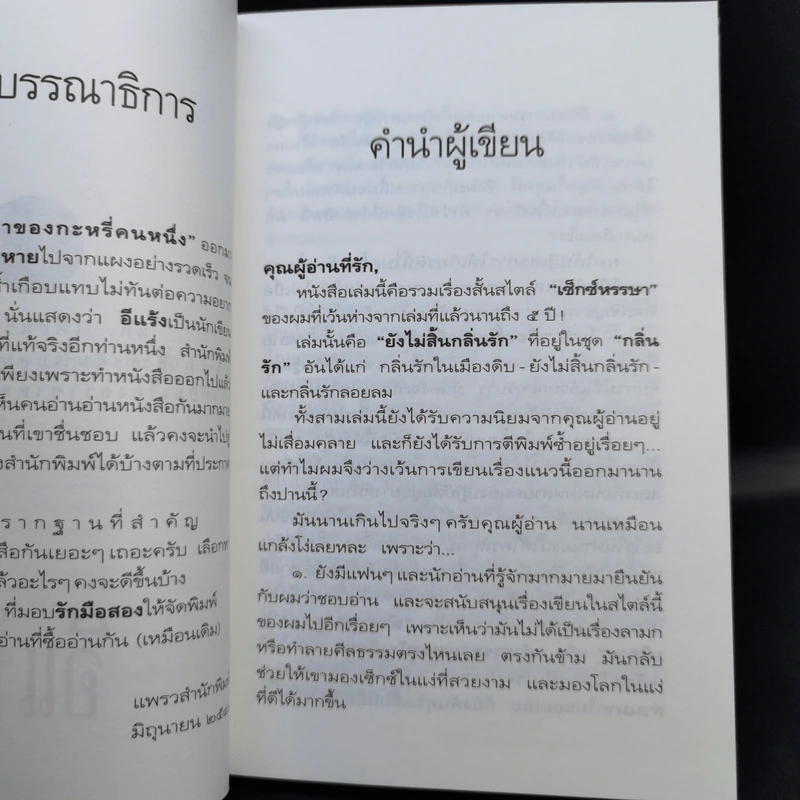 บรรณาธิการ
าของกะหรี่คนหนึ่ง” ออกมา
หายไปจากแผงอย่างรวดเร็ว จน
ซ้ำเกือบแทบไม่ทันต่อความอยาก
นั่นแสดงว่า อีแร้งเป็นนักเขียน
ที่แท้จริงอีกท่านหนึ่ง สำนักพิมพ์
เพียงเพราะทำหนังสือออกไปแล้ว
ห็นคนอ่านอ่านหนังสือกันมากมาย
นที่เขาชื่นชอบ แล้วคงจะนำไป
งสำนักพิมพ์ได้บ้างตามที่ประกาศ
รากฐานที่สำคัญ
สือกันเยอะๆ เถอะครับ เลือก
ล้วอะไรๆ คงจะดีขึ้นบ้าง
ที่มอบรักมือสองให้จัดพิมพ์
อ่านที่ซื้ออ่านกัน (เหมือนเดิม)
แพรวสำนักพิมพ์
มิถุนายน ๒๕๔
คำนำผู้เขียน
คุณผู้อ่านที่รัก,
หนังสือเล่มนี้คือรวมเรื่องสั้นสไตล์ “เซ็กซ์หรรษา”
ของผมที่เว้นห่างจากเล่มที่แล้วนานถึง ๕ ปี !
เล่มนั้นคือ “ยังไม่สิ้นกลิ่นรัก” ที่อยู่ในชุด “กลิ่น
รัก” อันได้แก่ กลิ่นรักในเมืองดิบ - ยังไม่สิ้นกลิ่นรัก -
และกลิ่นรักลอยลม
ทั้งสามเล่มนี้ยังได้รับความนิยมจากคุณผู้อ่านอยู่
ไม่เสื่อมคลาย และก็ยังได้รับการตีพิมพ์ซ้ำอยู่เรื่อยๆ...
แต่ทำไมผมจึงว่างเว้นการเขียนเรื่องแนวนี้ออกมานาน
ถึงปานนี้ ?
มันนานเกินไปจริงๆ ครับคุณผู้อ่าน นานเหมือน
แกล้งโง่เลยหละ เพราะว่า...
๑. ยังมีแฟนๆ และนักอ่านที่รู้จักมากมายมายืนยัน
กับผมว่าชอบอ่าน และจะสนับสนุนเรื่องเขียนในสไตล์นี้
ของผมไปอีกเรื่อยๆ เพราะเห็นว่ามันไม่ได้เป็นเรื่องลามก
หรือทำลายศีลธรรมตรงไหนเลย ตรงกันข้าม มันกลับ
ช่วยให้เขามองเซ็กซ์ในแง่ที่สวยงาม และมองโลกในแง่
ที่ดีได้มากขึ้น